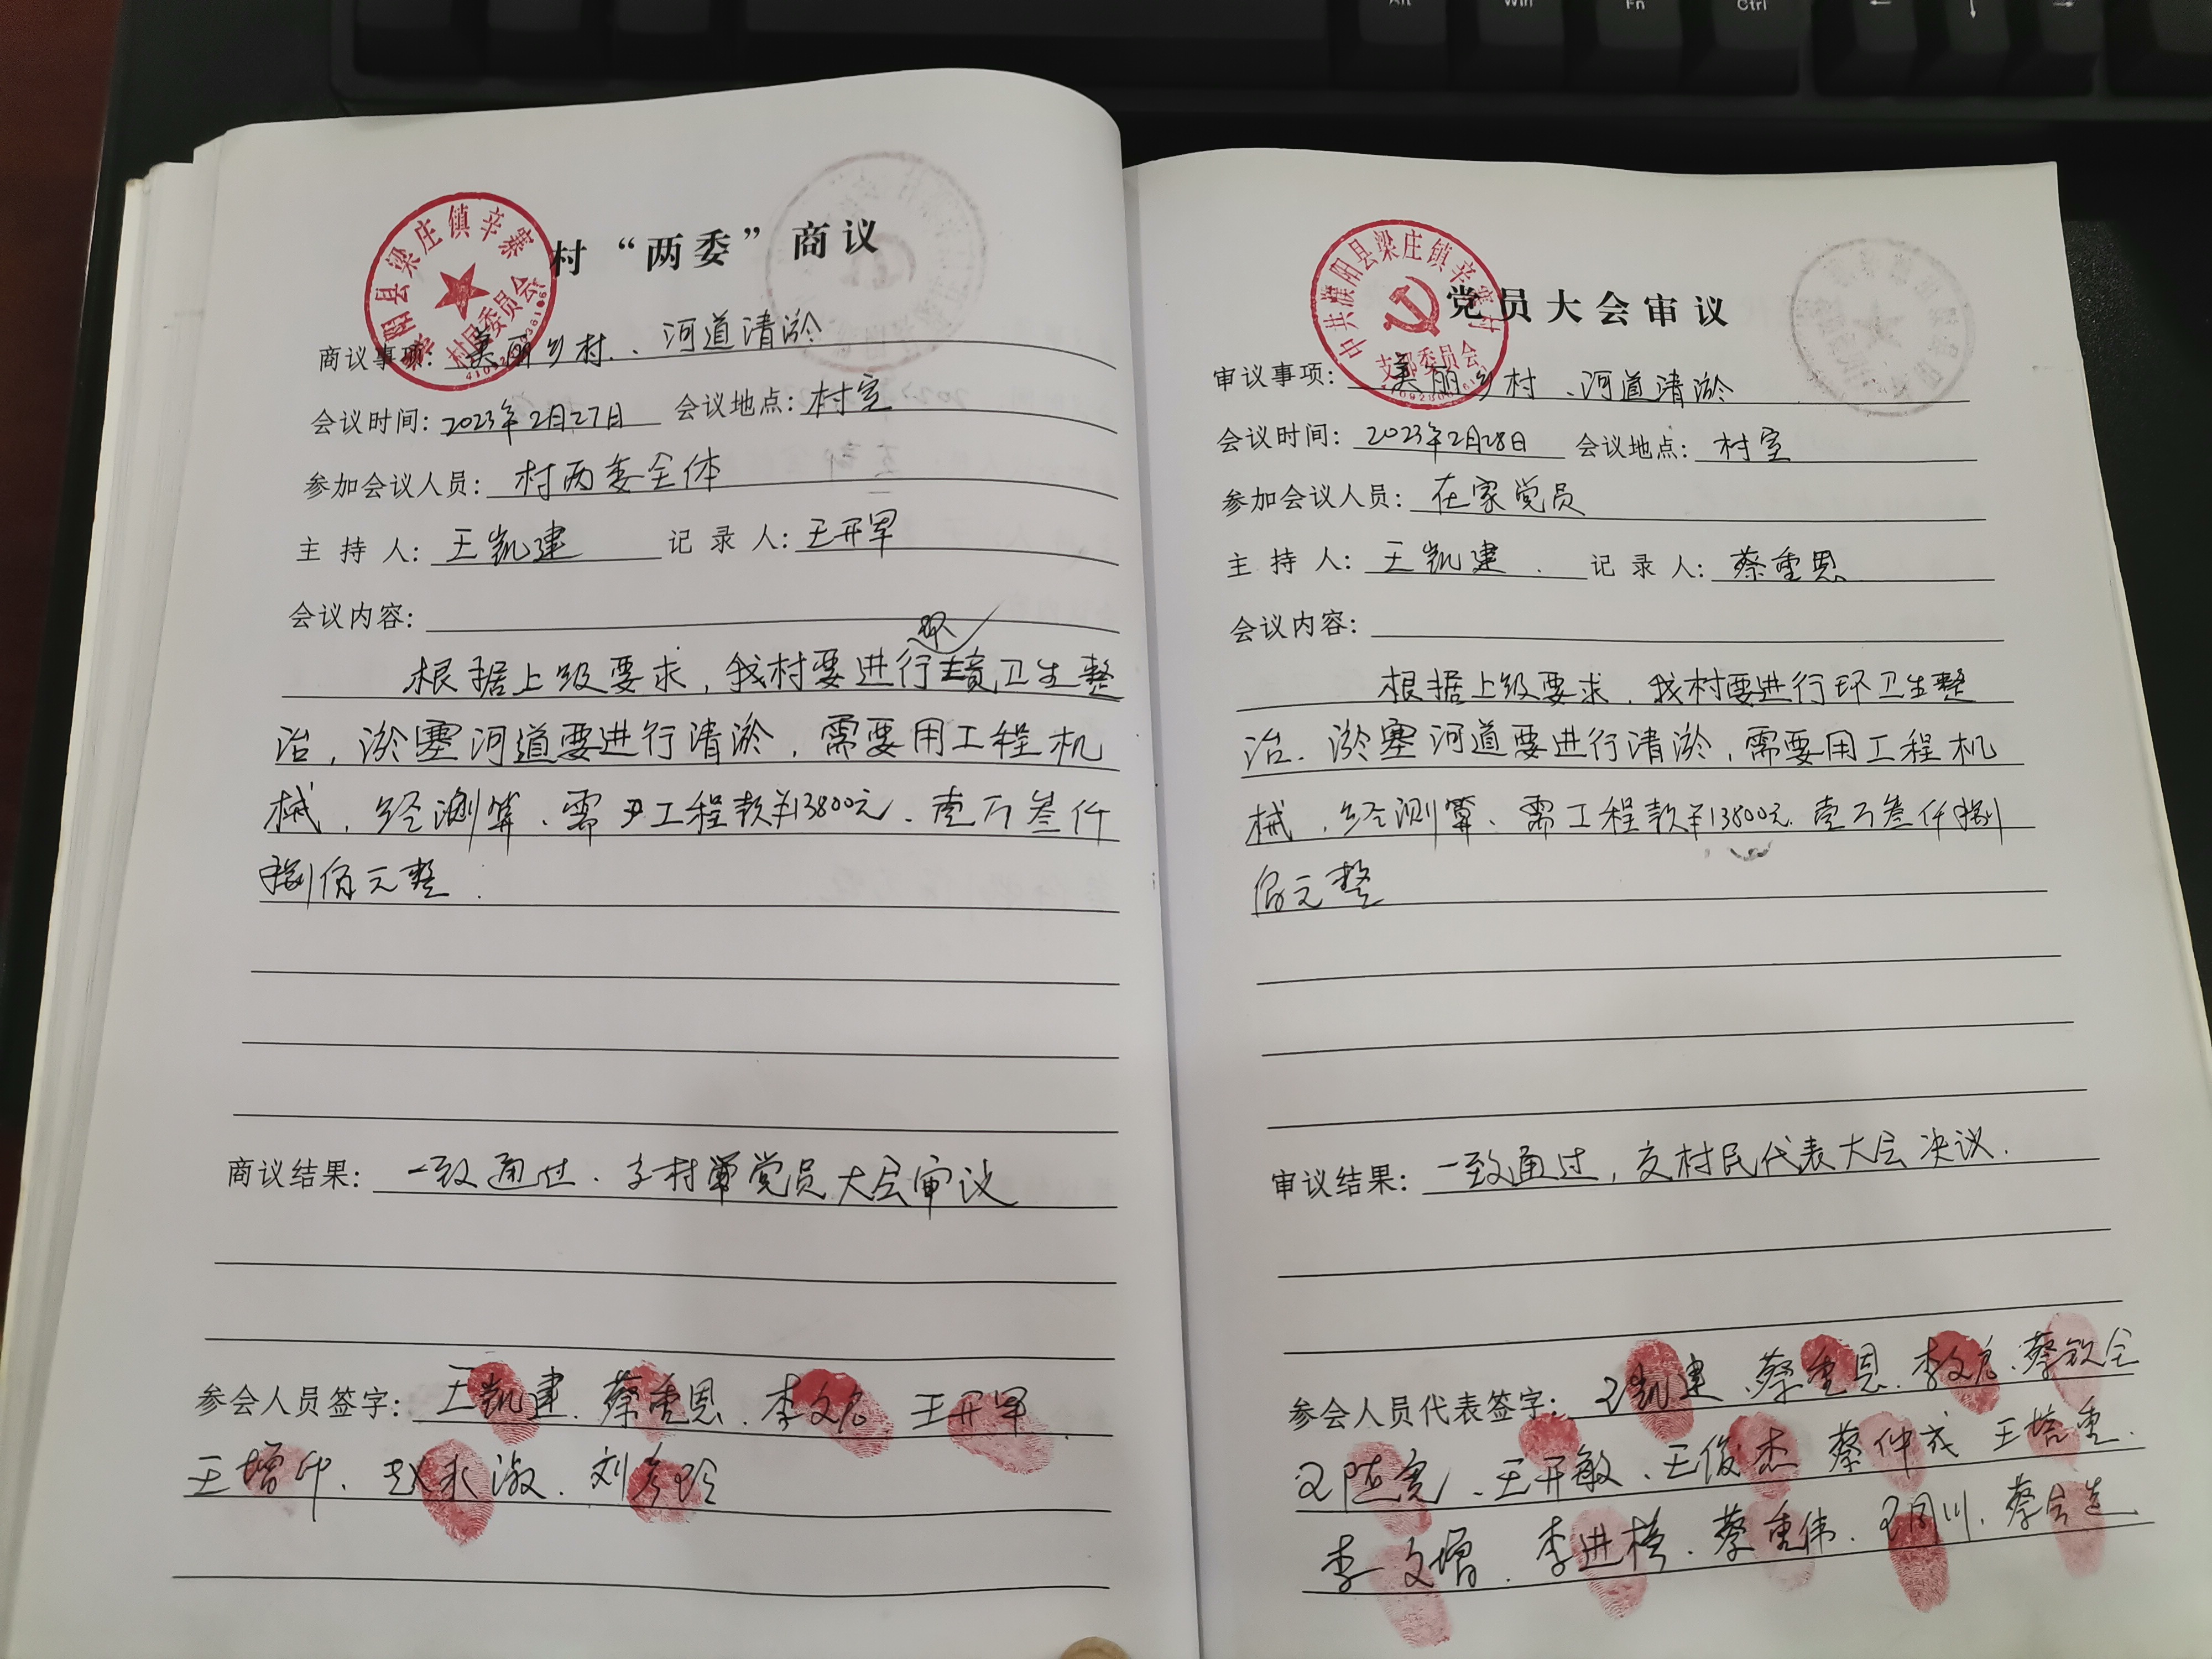 Alt Win Fn Ctrl ← ↓ →
濮阳县梁庄镇辛寨
村民委员会
村“两委”商议
商议事项：美丽乡村、河道清淤
会议时间：2023年2月27日 会议地点：村室
参加会议人员：村两委全体
主持人：王凯建 记录人：王开军
会议内容：
环
根据上级要求，我村要进行境卫生整
治，淤塞河道要进行清淤，需要用工程机
械，经测算、需工程款¥13800元、壹万叁仟
捌佰元整.
商议结果：一致通过、交村党员大会审议
参会人员签字：王凯建、蔡重恩、李文启 王开军
王增印、赵永淑、刘彦玲
中共濮阳县梁庄镇辛寨村
支部委员会
党员大会审议
审议事项：美丽乡村、河道清淤
会议时间：2023年2月28日 会议地点：村室
参加会议人员：在家党员
主持人：王凯建. 记录人：蔡重恩
会议内容：
根据上级要求，我村要进行环卫生整
治. 淤塞河道要进行清淤，需要用工程机
械，经测算、需工程款¥13800元. 壹万叁仟捌
佰元整
审议结果：一致通过，交村民代表大会决议.
参会人员代表签字：王凯建、蔡重恩、李文启、蔡钦全
王开敏、王俊杰 蔡仲成
李文增、李进榜、蔡重伟、王同川、蔡合选